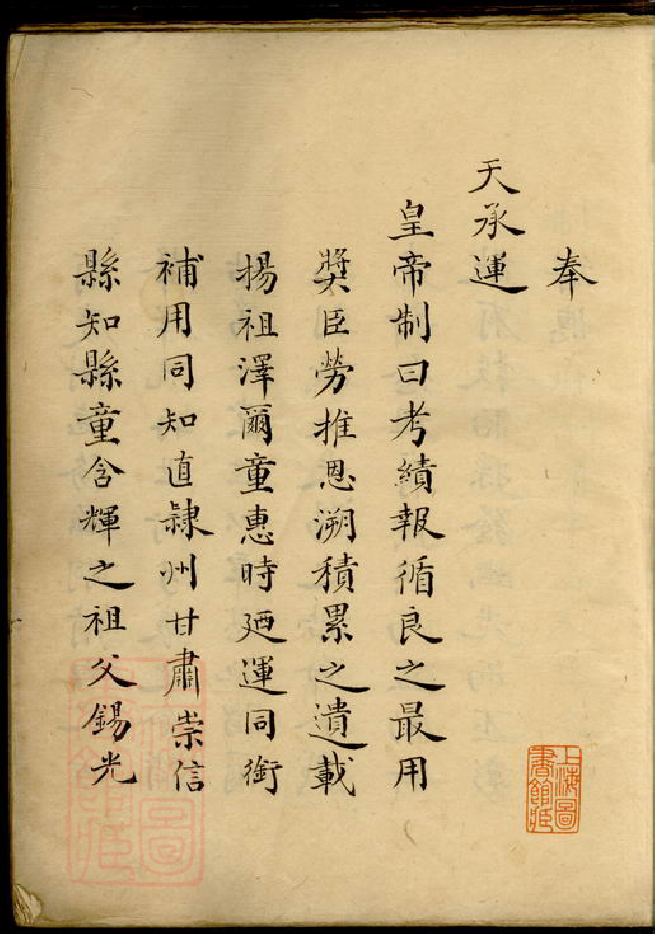 奉
天承運
皇帝制曰考績報循良之最用
獎臣勞推恩溯積累之遺載
揚祖澤爾童惠時廼運同銜
補用同知直隸州甘肅崇信
縣知縣童含輝之祖父錫光
上海圖
書館藏